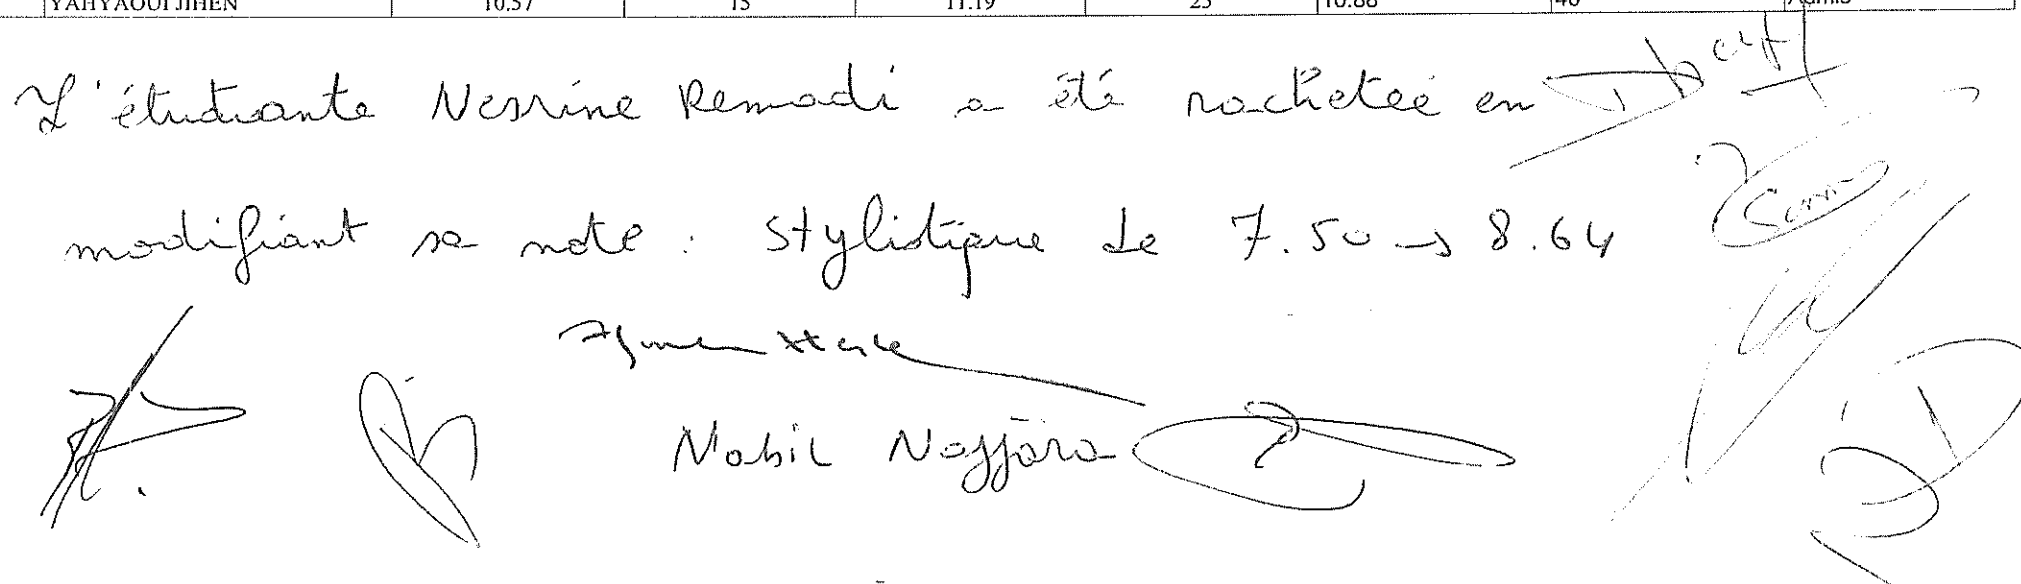 YAHYAOUI JIHEN 10.57 15 11.19 25 10.88 40 Admis
L'étudiante Nesrine Remadi a été rachetée en
modifiant sa note : Stylistique de 7.50 → 8.64
Nabil Najjara